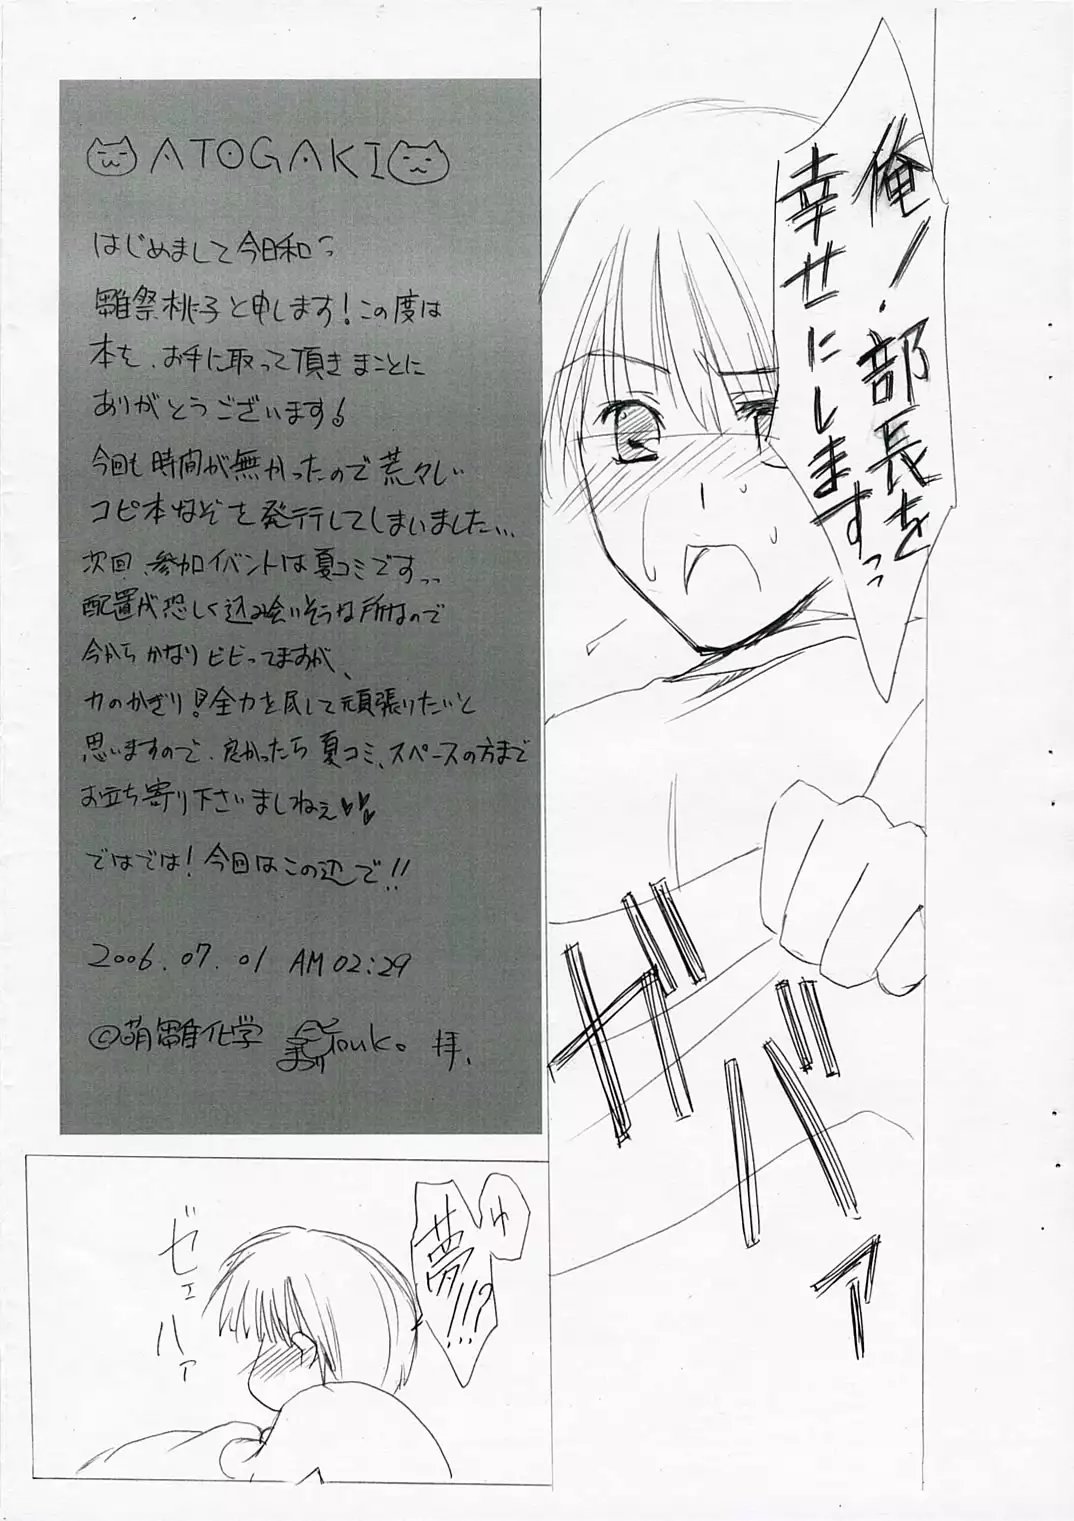 俺ノ!部長を
幸せにしますっ
ガバァ
ゆ
夢!!!?
ゼェ
ハァ
ATOGAKI
はじめまして今日和っ
雛祭桃子と申します!この度は
本を、お手に取って頂きまことに
ありがとうございます!
今回も時間が無かったので荒々しい
コピ本なぞを発行してしまいました...
次回、参加イベントは夏コミですっっ
配置が恐しく込み合いそうな所なので
今からかなりビビってますが、
力のかぎり!全力を尽して頑張りたいと
思いますので、良かったら夏コミ、スペースの方まで
お立ち寄り下さいましねぇ♥♥
ではでは!今回はこの辺で!!
2006.07.01 AM 02:29
©萌雛化学 Touko 拝、